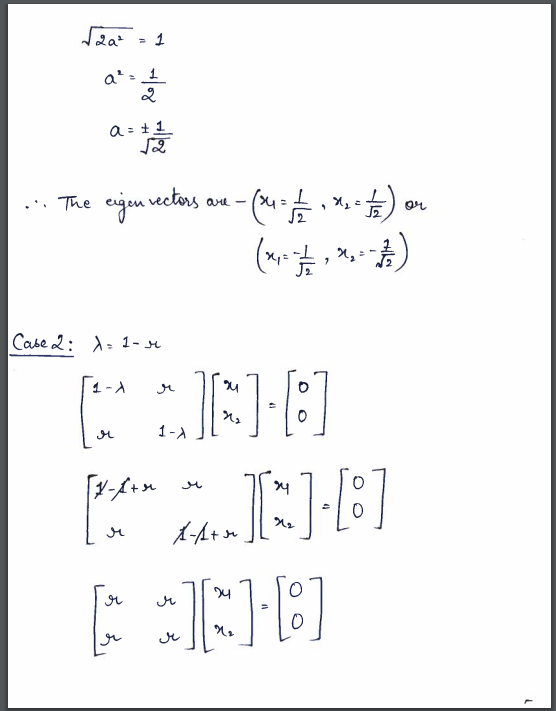 √2a² = 1
a² = 1/2
a = ± 1/√2
∴ The eigen vectors are – (x₁ = 1/√2 , x₂ = 1/√2) or
(x₁ = -1/√2 , x₂ = -1/√2)
Case 2: λ = 1 - r
[1-λ r; r 1-λ] [x₁; x₂] = [0; 0]
[1-1+r r; r 1-1+r] [x₁; x₂] = [0; 0]
[r r; r r] [x₁; x₂] = [0; 0]